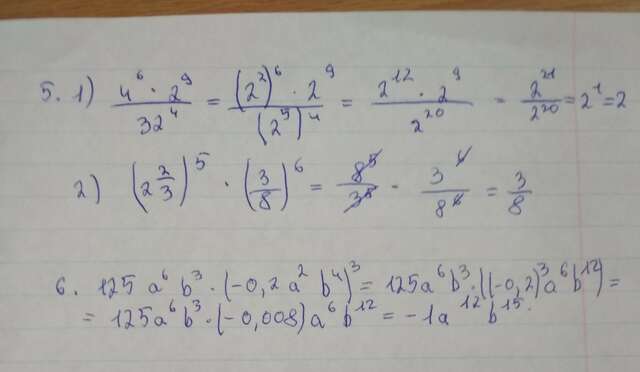 5. 1) (4⁶ · 2⁹)/(32⁴) = ((2²)⁶ · 2⁹)/((2⁵)⁴) = (2¹² · 2⁹)/(2²⁰) = 2²¹/2²⁰ = 2¹ = 2
2) (2 2/3)⁵ · (3/8)⁶ = 8⁵/3⁵ · 3⁶/8⁶ = 3/8
6. 125 a⁶ b³ · (-0,2 a² b⁴)³ = 125a⁶b³ · ((-0,2)³a⁶b¹²) =
= 125a⁶b³ · (-0,008)a⁶b¹² = -1a¹²b¹⁵.